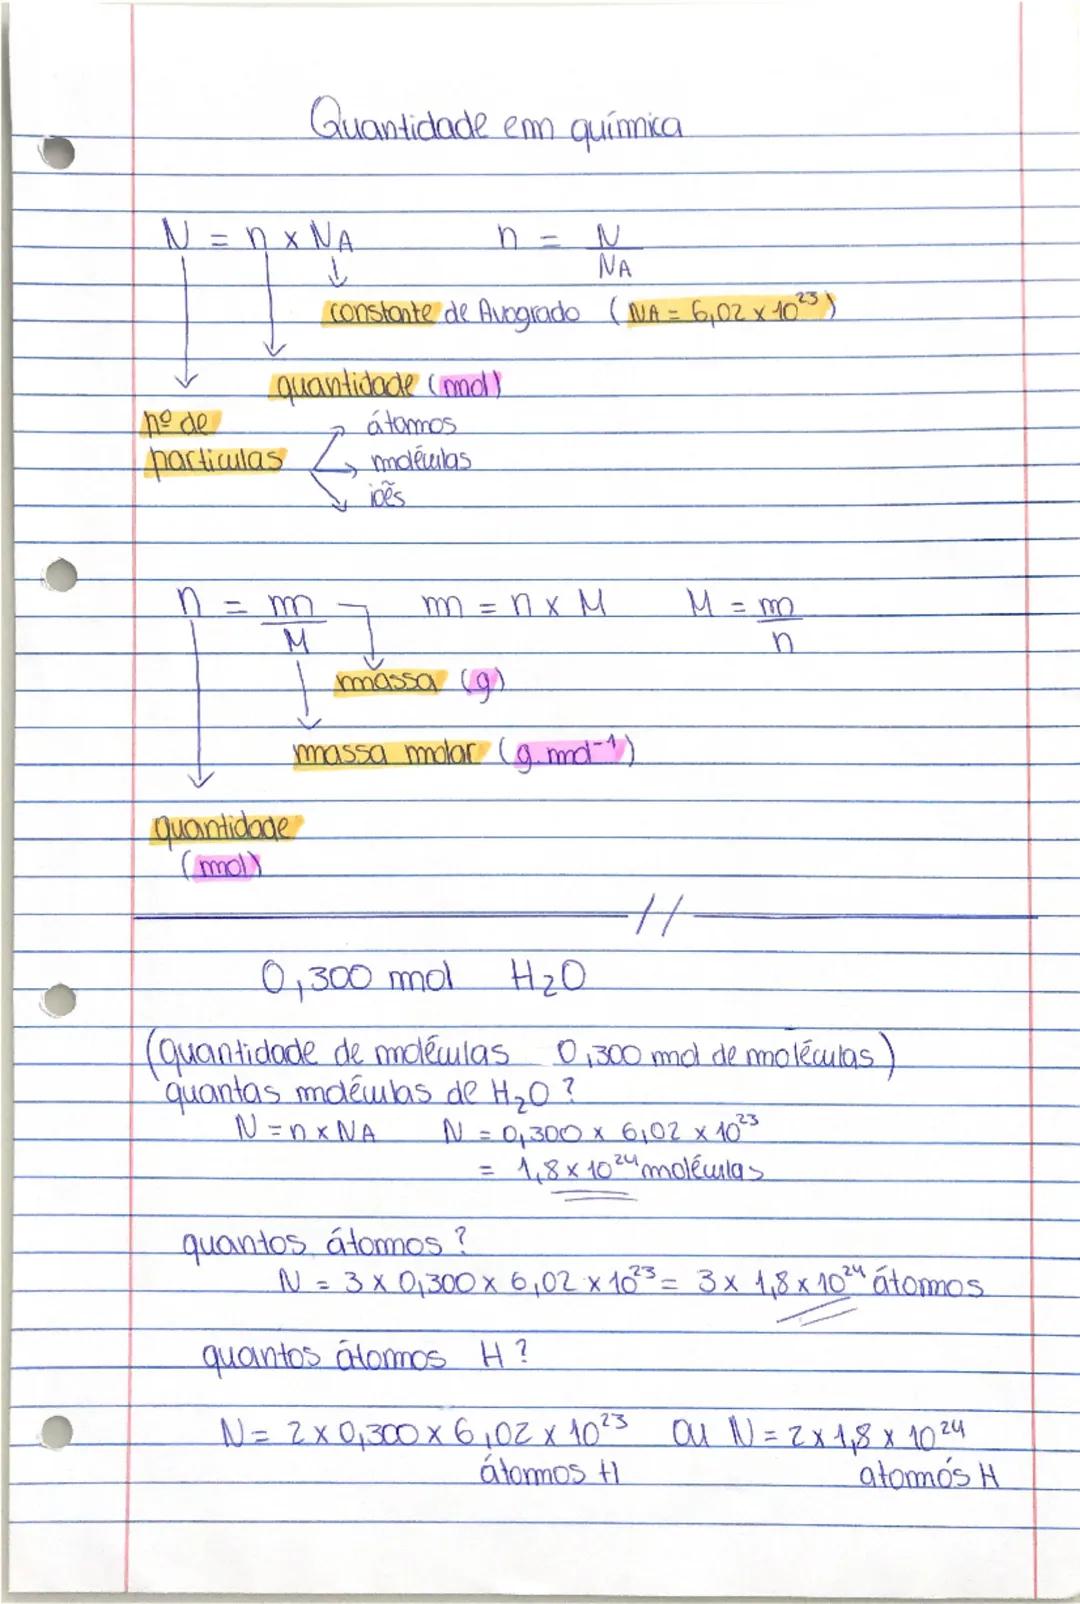 Quantidade em química
N = n x NA n = N/NA
constante de Avogrado (NA = 6,02 x 10²³)
quantidade (mol)
nº de átomos
particulas moléculas
iões
n = m/M m = n x M M = m/n
massa (g)
massa molar (g.mol⁻¹)
quantidade
(mol)
0,300 mol H₂O
(quantidade de moléculas 0,300 mol de moléculas)
quantas moléculas de H₂O?
N = n x NA N = 0,300 x 6,02 x 10²³
= 1,8 x 10²⁴ moléculas
quantos átomos?
N = 3 x 0,300 x 6,02 x 10²³ = 3 x 1,8 x 10²⁴ átomos
quantos átomos H?
N = 2 x 0,300 x 6,02 x 10²³ ou N = 2 x 1,8 x 10²⁴
átomos H atomós H